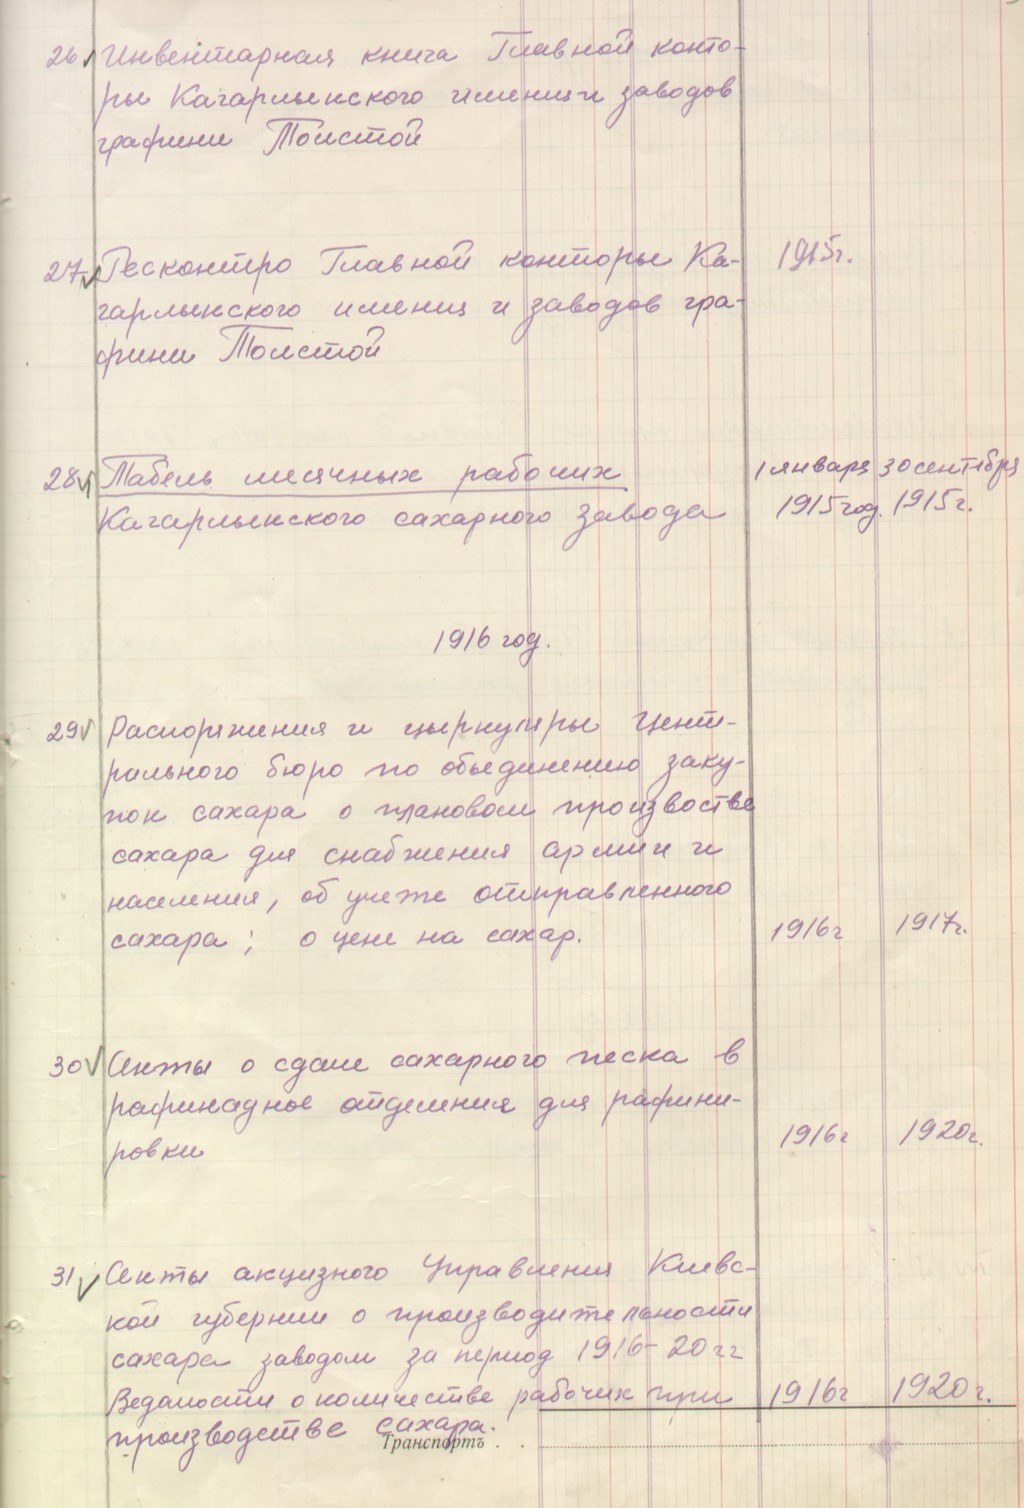 26 Инвентарная книга Главной конто-
ры Кагарлыкского имениц и заводов
графини Толстой
27 Ресконтро Главной конторы Ка- 1915г.
гарлыкского имениц и заводов гра-
фини Толстой
28 Табель месячных рабочих 1 января 30 сентября
Кагарлыкского сахарного завода 1915 год. 1915г.
1916 год.
29 Распоряжения и цыркуляры Цент-
рального бюро по объединению заку-
пок сахара о плановом произвостве
сахара для снабжения армии и
населения, об учете отправленного
сахара; о цене на сахар. 1916г 1917г.
30 Акты о сдаче сахарного песка в
рафинадное отделения для рафини-
ровки 1916г 1920г.
31 Акты акцизного Управления Киевс-
кой губернии о производительности
сахара заводом за период 1916-20гг
Ведомости о количестве рабочих при 1916г 1920г.
производстве сахара.
Транспортъ . .